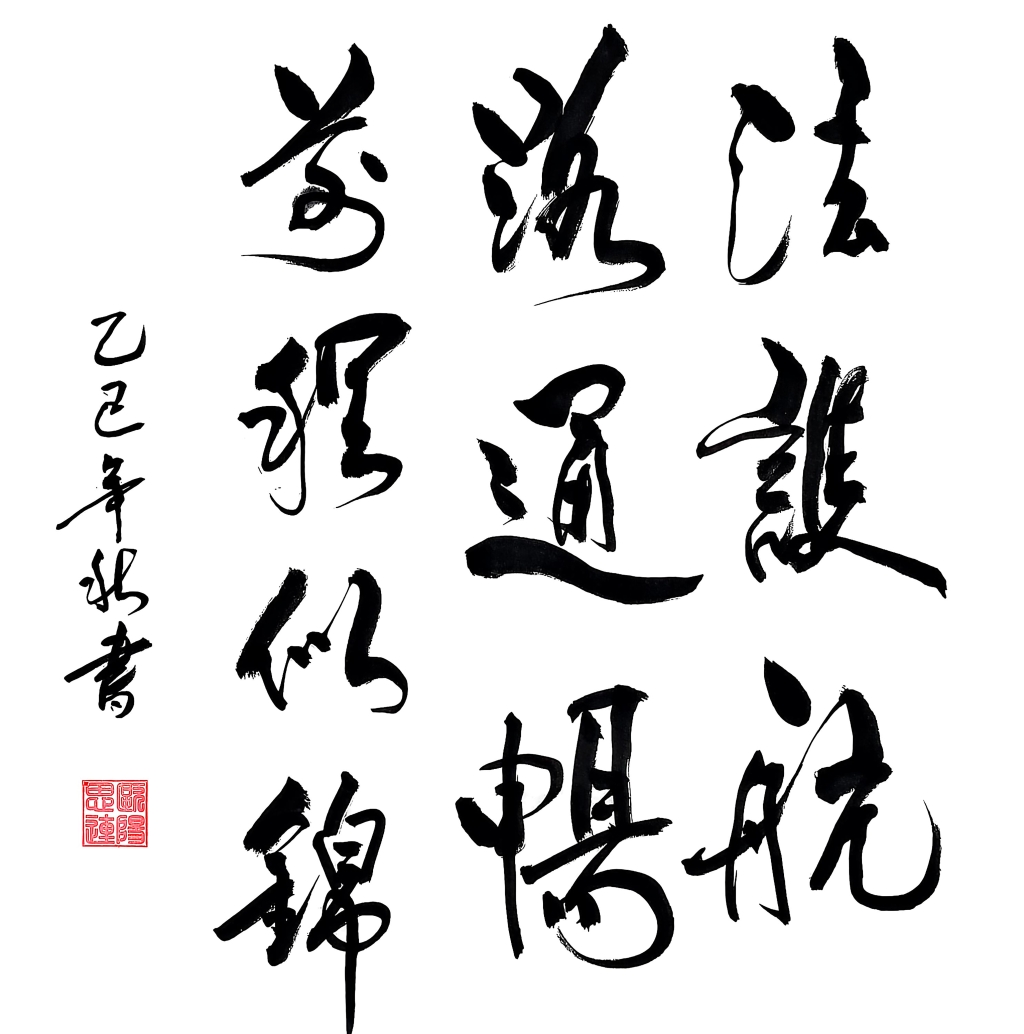 法護航
路通暢
前程似錦
乙巳年秋書
歐陽思連